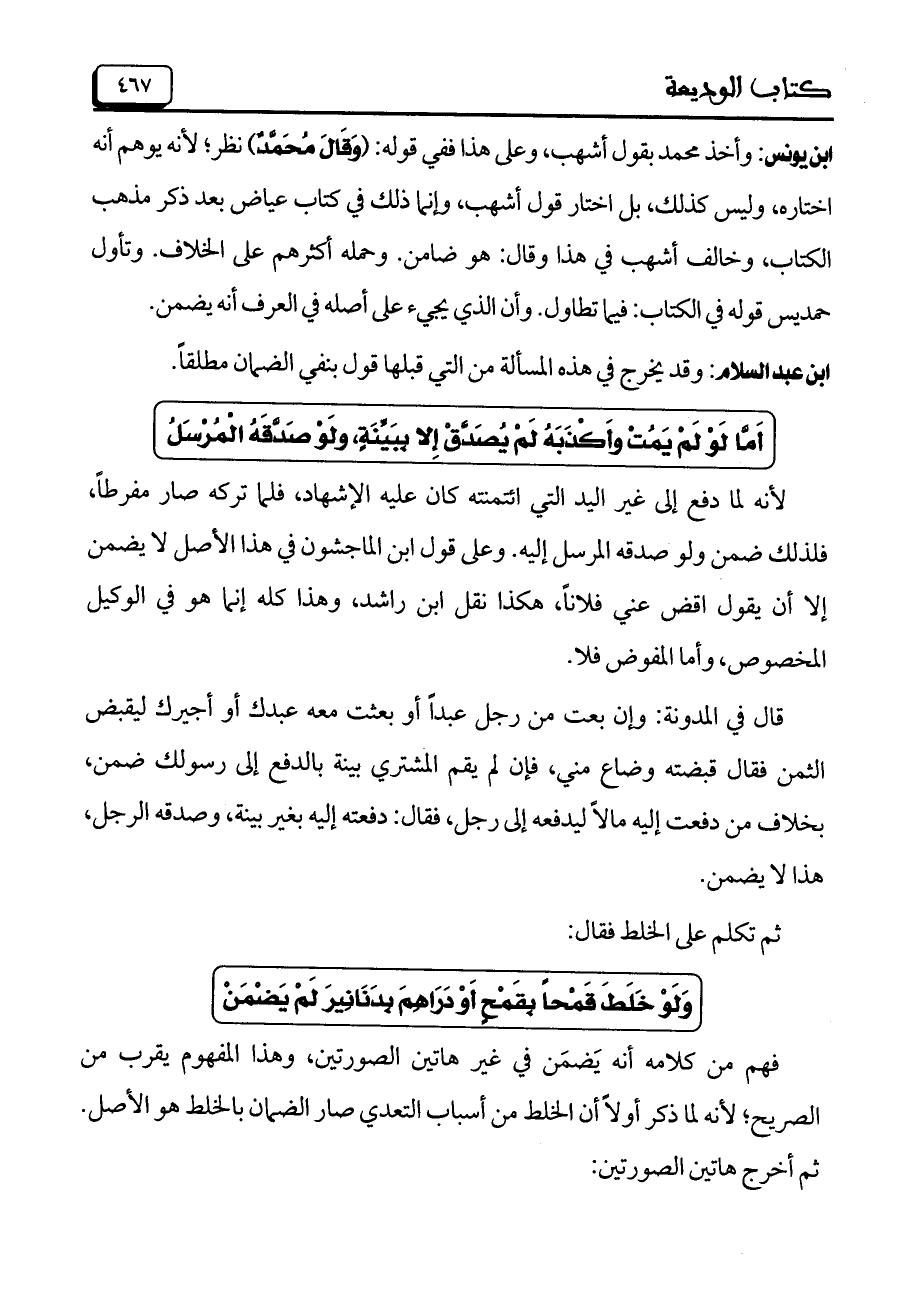 كتاب الوديعة
٤٦٧
ابن يونس: وأخذ محمد بقول أشهب، وعلى هذا ففي قوله: (وَقَالَ مُحَمَّدٌ) نظر؛ لأنه يوهم أنه
اختاره، وليس كذلك، بل اختار قول أشهب، وإنما ذلك في كتاب عياض بعد ذكر مذهب
الكتاب، وخالف أشهب في هذا وقال: هو ضامن. وحمله أكثرهم على الخلاف. وتأول
حمديس قوله في الكتاب: فيما تطاول. وأن الذي يجيء على أصله في العرف أنه يضمن.
ابن عبد السلام: وقد يخرج في هذه المسألة من التي قبلها قول بنفي الضمان مطلقاً.
أَمَّا لَوْ لَمْ يَمُتْ وأَكْذَبَهُ لَمْ يُصَدَّقْ إِلا بِبَيِّنَةٍ، ولَوْ صَدَّقَهُ الْمُرْسَلُ
لأنه لما دفع إلى غير اليد التي ائتمنته كان عليه الإشهاد، فلما تركه صار مفرطاً،
فلذلك ضمن ولو صدقه المرسل إليه. وعلى قول ابن الماجشون في هذا الأصل لا يضمن
إلا أن يقول اقض عني فلاناً، هكذا نقل ابن راشد، وهذا كله إنما هو في الوكيل
المخصوص، وأما المفوض فلا.
قال في المدونة: وإن بعت من رجل عبداً أو بعثت معه عبدك أو أجيرك ليقبض
الثمن فقال قبضته وضاع مني، فإن لم يقم المشتري بينة بالدفع إلى رسولك ضمن،
بخلاف من دفعت إليه مالاً ليدفعه إلى رجل، فقال: دفعته إليه بغير بينة، وصدقه الرجل،
هذا لا يضمن.
ثم تكلم على الخلط فقال:
وَلَوْ خَلَطَ قَمْحاً بِقَمْحٍ أَوْ دَرَاهِمَ بِدَنَانِيرَ لَمْ يَضْمَنْ
فهم من كلامه أنه يَضمَن في غير هاتين الصورتين، وهذا المفهوم يقرب من
الصريح؛ لأنه لما ذكر أولاً أن الخلط من أسباب التعدي صار الضمان بالخلط هو الأصل.
ثم أخرج هاتين الصورتين: